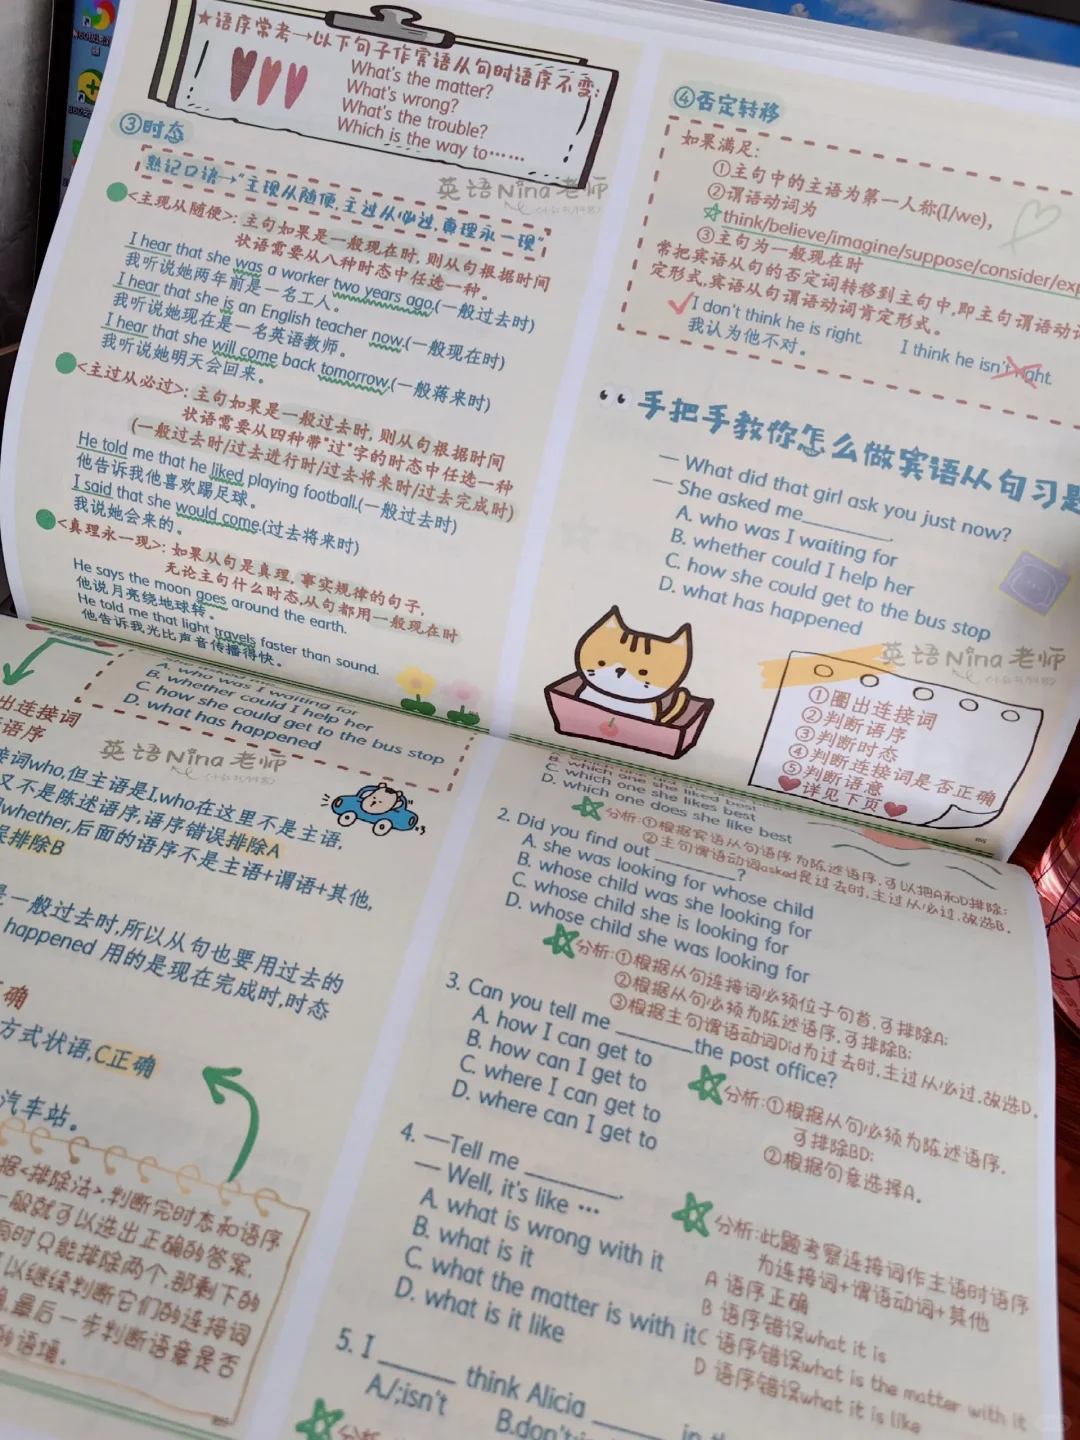 ★语序常考→以下句子作宾语从句时语序不变:
What's the matter?
What's wrong?
What's the trouble?
Which is the way to……
③时态
熟记口语→"主现从随便,主过从必过,真理永一现"
英语Nina老师
<主现从随便>: 主句如果是一般现在时, 则从句根据时间
状语需要从八种时态中任选一种。
I hear that she was a worker two years ago.(一般过去时)
我听说她两年前是一名工人。
I hear that she is an English teacher now.(一般现在时)
我听说她现在是一名英语教师。
I hear that she will come back tomorrow.(一般将来时)
我听说她明天会回来。
<主过从必过>: 主句如果是一般过去时, 则从句根据时间
状语需要从四种带"过"字的时态中任选一种
(一般过去时/过去进行时/过去将来时/过去完成时)
He told me that he liked playing football.(一般过去时)
他告诉我他喜欢踢足球。
I said that she would come.(过去将来时)
我说她会来的。
<真理永一现>: 如果从句是真理, 事实规律的句子,
无论主句什么时态,从句都用一般现在时
He says the moon goes around the earth.
他说月亮绕地球转。
He told me that light travels faster than sound.
他告诉我光比声音传播得快。
④否定转移
如果满足:
①主句中的主语为第一人称(I/we),
②谓语动词为
☆think/believe/imagine/suppose/consider/exp
③主句为一般现在时
常把宾语从句的否定词转移到主句中,即主句谓语动词
定形式,宾语从句谓语动词肯定形式。
✓I don't think he is right.
I think he isn't right.
我认为他不对。
手把手教你怎么做宾语从句习题
— What did that girl ask you just now?
— She asked me________.
A. who was I waiting for
B. whether could I help her
C. how she could get to the bus stop
D. what has happened
英语Nina老师
①圈出连接词
②判断语序
③判断时态
④判断连接词是否正确
⑤判断语意
详见下页
A. who was I waiting for
B. whether could I help her
C. how she could get to the bus stop
D. what has happened
英语Nina老师
出连接词
语序
接词who,但主语是I,who在这里不是主语,
又不是陈述语序,语序错误排除A
whether,后面的语序不是主语+谓语+其他,
误排除B
是一般过去时,所以从句也要用过去的
happened 用的是现在完成时,时态
确
方式状语,C正确
汽车站。
据<排除法>,判断完时态和语序
一般就可以选出正确的答案,
有时只能排除两个,那剩下的
可以继续判断它们的连接词
最后一步判断语意是否
的语境。
B. which one she liked best
C. which one she likes best
D. which one does she like best
分析:①根据宾语从句语序为陈述语序,可以把A和D排除;
②主句谓语动词asked是过去时,主过从必过,故选B。
2. Did you find out ________?
A. she was looking for whose child
B. whose child was she looking for
C. whose child she is looking for
D. whose child she was looking for
分析:①根据从句连接词必须位于句首,可排除A;
②根据从句必须为陈述语序,可排除B;
③根据主句谓语动词Did为过去时,主过从必过,故选D。
3. Can you tell me ________the post office?
A. how I can get to
B. how can I get to
C. where I can get to
D. where can I get to
分析:①根据从句必须为陈述语序,
可排除BD;
②根据句意选择A。
4. —Tell me ________.
— Well, it's like …
A. what is wrong with it
B. what is it
C. what the matter is with it
D. what is it like
分析:此题考察连接词作主语时语序
为连接词+谓语动词+其他
A 语序正确
B 语序错误what it is
C 语序错误what is the matter with it
D 语序错误what it is like
5. I ______ think Alicia ______ in th
A./;isn't
B.don't;
分析